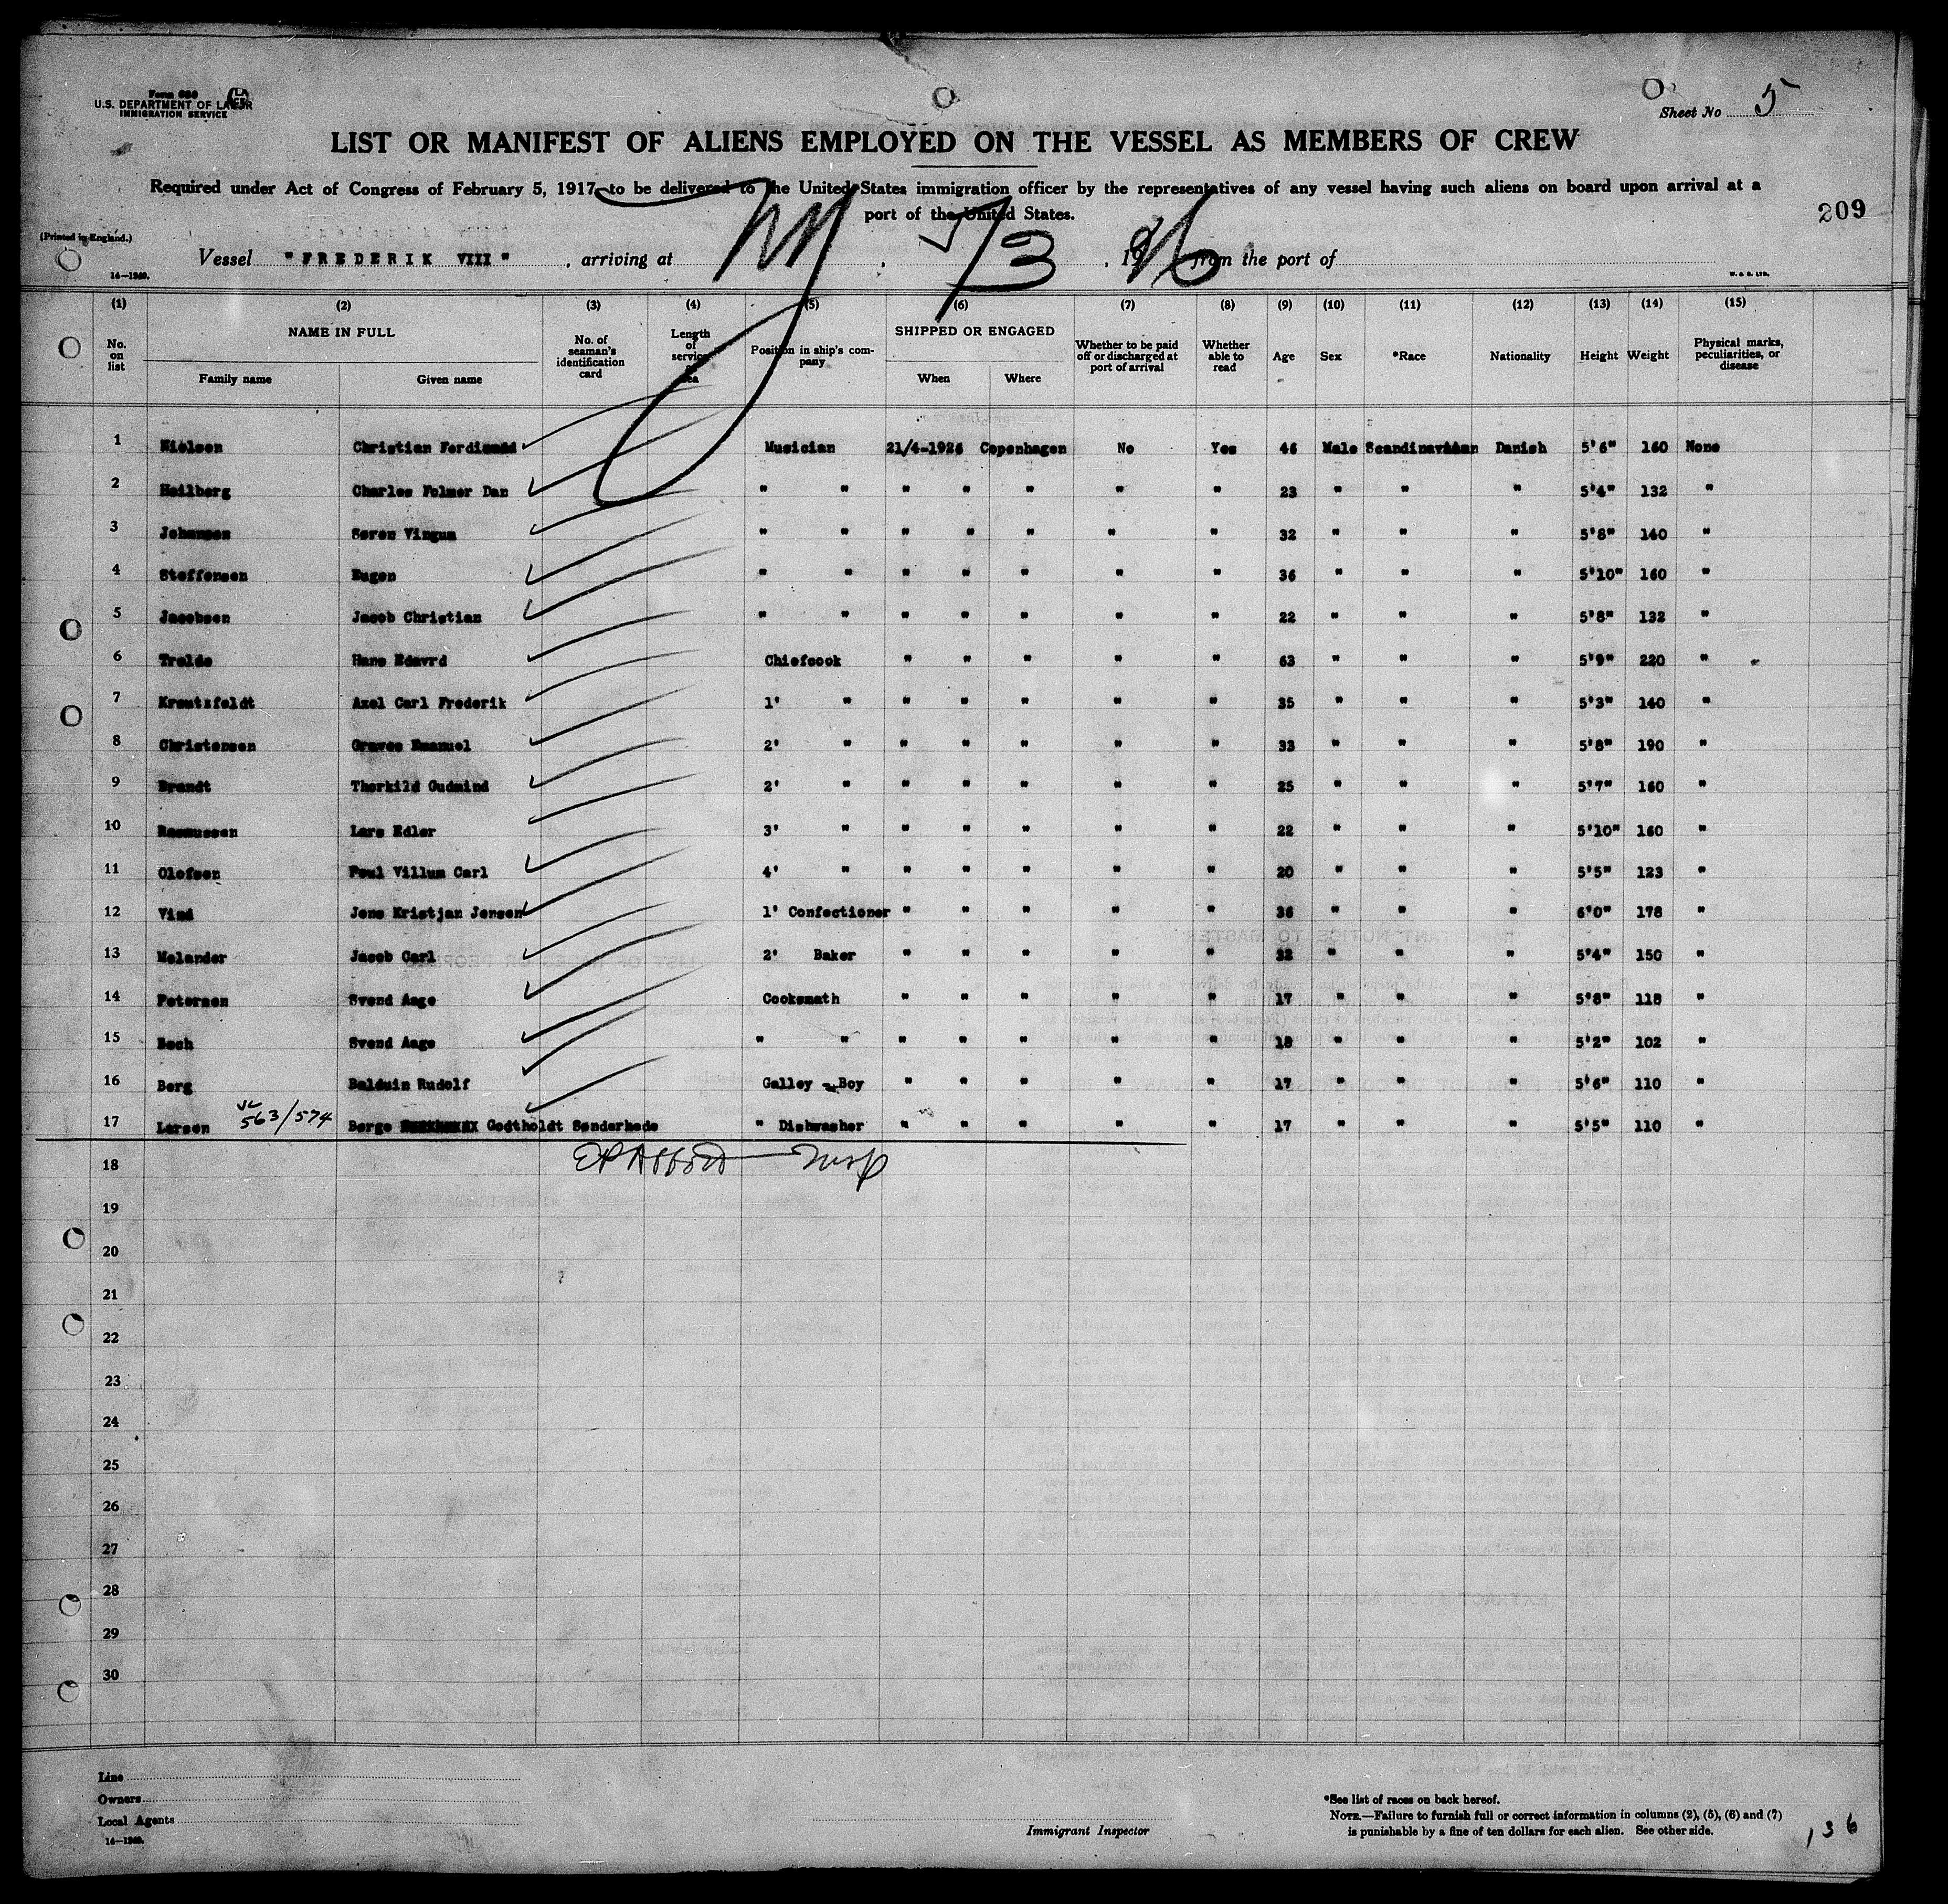 Form 680
U.S. DEPARTMENT OF LABOR
IMMIGRATION SERVICE
Sheet No 5
LIST OR MANIFEST OF ALIENS EMPLOYED ON THE VESSEL AS MEMBERS OF CREW
Required under Act of Congress of February 5, 1917, to be delivered to the United States immigration officer by the representatives of any vessel having such aliens on board upon arrival at a
port of the United States.
209
(Printed in England.)
Vessel "FREDERIK VIII", arriving at NY, 5/3, 1926 from the port of
14—1240.
W. & S. LTD.
(1) (2) (3) (4) (5) (6) (7) (8) (9) (10) (11) (12) (13) (14) (15)
No. on list NAME IN FULL Family name Given name No. of seaman's identification card Length of service at sea Position in ship's company SHIPPED OR ENGAGED When Where Whether to be paid off or discharged at port of arrival Whether able to read Age Sex *Race Nationality Height Weight Physical marks, peculiarities, or disease
1 Nielsen Christian Ferdinand Musician 21/4-1926 Copenhagen No Yes 46 Male Scandinavian Danish 5'6" 160 None
2 Heilberg Charles Folmer Dan " " " " " " " 23 " " " 5'4" 132 "
3 Johansen Søren Vingum " " " " " " " 32 " " " 5'8" 140 "
4 Steffensen Eugen " " " " " " " 36 " " " 5'10" 160 "
5 Jacobsen Jacob Christian " " " " " " " 22 " " " 5'8" 132 "
6 Trolde Hans Edavrd Chiefcook " " " " " 63 " " " 5'9" 220 "
7 Kreutzfeldt Axel Carl Frederik 1' " " " " " " 35 " " " 5'3" 140 "
8 Christensen Graves Emanuel 2' " " " " " " 33 " " " 5'8" 190 "
9 Brandt Thorkild Gudmind 2' " " " " " " 25 " " " 5'7" 160 "
10 Rasmussen Lars Edler 3' " " " " " " 22 " " " 5'10" 160 "
11 Olefsen Poul Villum Carl 4' " " " " " " 20 " " " 5'5" 123 "
12 Vind Jens Kristjan Jensen 1' Confectioner " " " " " 36 " " " 6'0" 178 "
13 Melander Jacob Carl 2' Baker " " " " " 32 " " " 5'4" 150 "
14 Petersen Svend Aage Cooksmath " " " " " 17 " " " 5'8" 118 "
15 Bech Svend Aage " " " " " " " 18 " " " 5'2" 102 "
16 Berg Balduin Rudolf Galley - Boy " " " " " 17 " " " 5'6" 110 "
17 Larsen 563/574 Børge Godtholdt Sønderhede " Dishwasher " " " " " 17 " " " 5'5" 110 "
18
19
20
21
22
23
24
25
26
27
28
29
30
Line
Owners
Local Agents
14—1240.
Immigrant Inspector
*See list of races on back hereof.
NOTE.—Failure to furnish full or correct information in columns (2), (5), (6) and (7)
is punishable by a fine of ten dollars for each alien. See other side.
136